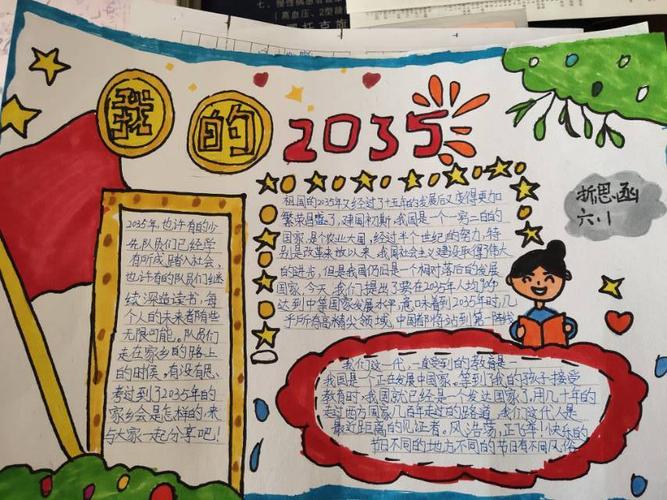 我的2035
折思函
六.1
2035年,也许有的少
先队员们已经学
有所成,踏入社会,
也许有的队员们继
续深造读书,每
个人的未来都随些
无限可能。队员们
走在家乡的路上
的时候,有没有思
考过到了2035年的
家乡会是怎样的,来
与大家一起分享吧!
祖国的2035年又经过了十五年的发展后又变得更加
繁荣昌盛了,建国初期,我国是一个一穷二白的
国家,是个农业大国,经过半个世纪的努力,特
别是改革开放以来,我国社会主义建设取得了伟大
的进步,但是我国仍旧是一个相对落后的发展
国家,今天,我们提出了要在2035年人均
达到中等国家发展水平,意味着到2035年时,几
乎所有高精尖领域,中国都将站到第一阵线
我们这一代,一直受到的教育是
我国是一个正在发展中国家。等到了我的孩子接受
教育时,我国就已经是一个发达国家了,用几十年的
走过西方国家几百年走过的路道,我们这代人是
最近距离的见证者。风浩荡,正飞年!快乐的
节日不同的地方不同的节日有不同风俗